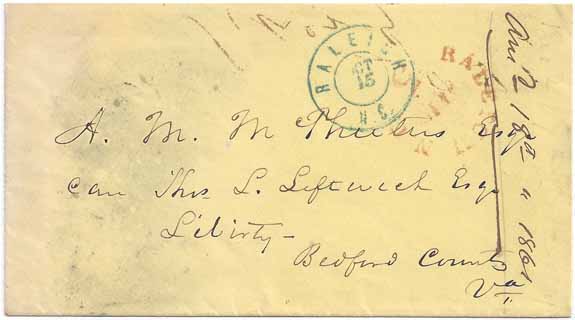 RALEIGH
OCT
15
N.C.
A. M. McPheeters Esq
care Thos L. Leftwich Esq
Liberty -
Bedford County
Va
Ans 1861